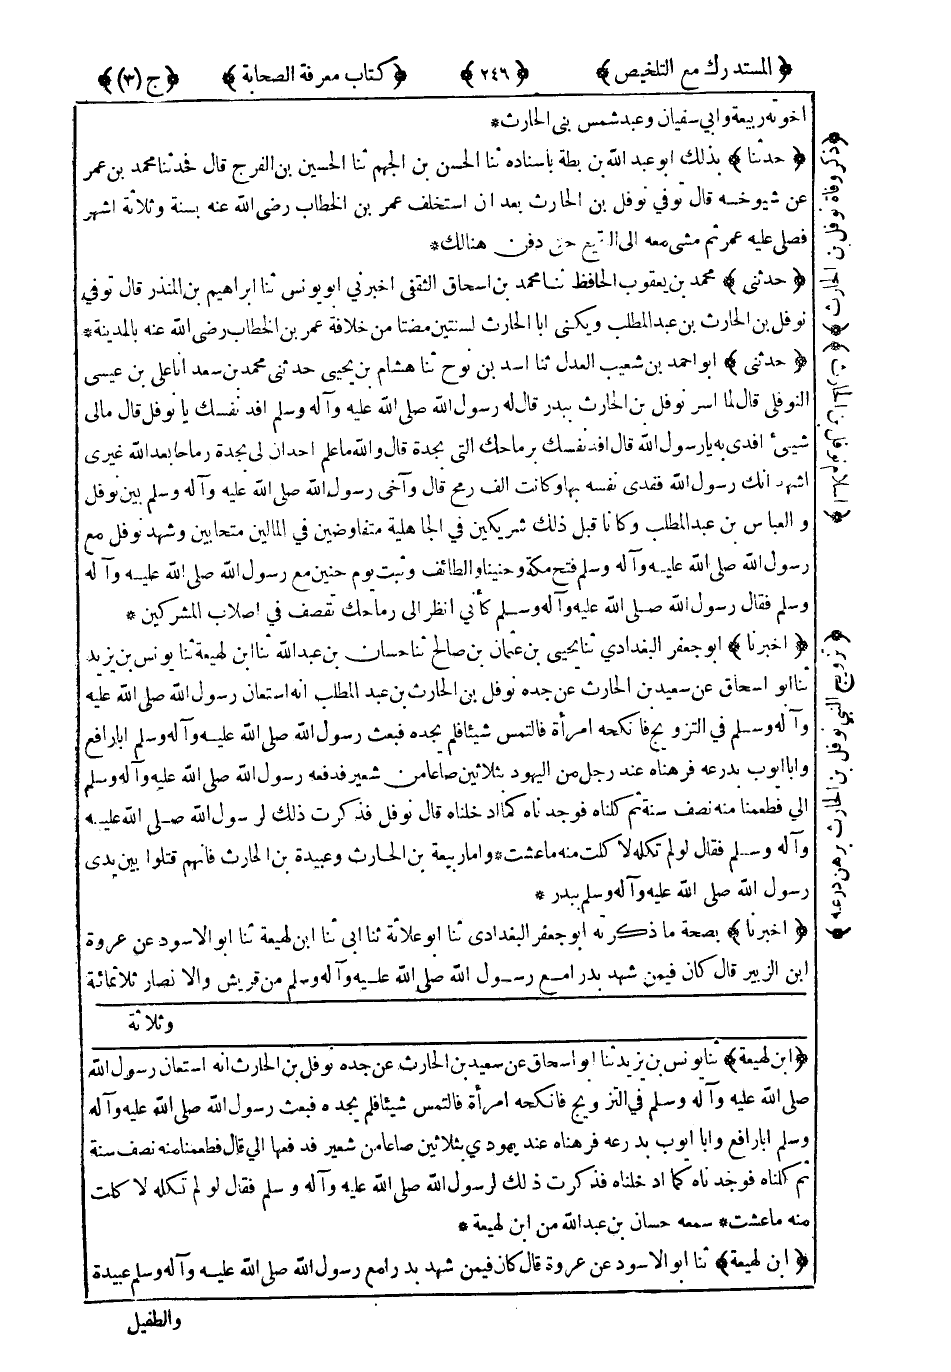 ﴿المستدرك مع التلخيص﴾ ﴿٢٤٦﴾ ﴿كتاب معرفة الصحابة﴾ ﴿ج (٣)﴾
اخوته ربيعة وابي سفيان وعبد شمس بنى الحارث*
﴿حدثنا﴾ بذلك ابو عبد الله بن بطة باسناده ثنا الحسن بن الجهم ثنا الحسين بن الفرج قال فحدثنا محمد بن عمر
عن شيوخه قال توفي نوفل بن الحارث بعد ان استخلف عمر بن الخطاب رضى الله عنه بسنة وثلاثة اشهر
فصلى عليه عمر ثم مشى معه الى البقيع حتى دفن هنالك*
﴿حدثنى﴾ محمد بن يعقوب الحافظ ثنا محمد بن اسحاق الثقفى اخبرني ابو يونس ثنا ابراهيم بن المنذر قال توفي
نوفل بن الحارث بن عبد المطلب ويكنى ابا الحارث لسنتين مضتا من خلافة عمر بن الخطاب رضى الله عنه بالمدينة*
﴿حدثنى﴾ ابو احمد بن شعيب العدل ثنا اسد بن نوح ثنا هشام بن يحيى حدثنى محمد بن سعد انا على بن عيسى
النوفلى قال لما اسر نوفل بن الحارث ببدر قال له رسول الله صلى الله عليه وآله وسلم افد نفسك يا نوفل قال مالى
شيئ افدى به يا رسول الله قال افد نفسك برماحك التى بجدة قال والله ما علم احد ان لى بجدة رماحا بعد الله غيرى
اشهد انك رسول الله ففدى نفسه بها وكانت الف رمح قال وآخى رسول الله صلى الله عليه وآله وسلم بين نوفل
و العباس بن عبد المطلب وكانا قبل ذلك شريكين في الجاهلية متفاوضين في المالين متحابين وشهد نوفل مع
رسول الله صلى الله عليه وآله وسلم فتح مكة وحنينا والطائف وثبت يوم حنين مع رسول الله صلى الله عليه وآله
وسلم فقال رسول الله صلى الله عليه وآله وسلم كأني انظر الى رماحك تقصف في اصلاب المشركين *
﴿اخبرنا﴾ ابو جعفر البغدادي ثنا يحيى بن عثمان بن صالح ثنا حسان بن عبد الله ثنا ابن لهيعة ثنا يونس بن يزيد
ثنا ابو اسحاق عن سعيد بن الحارث عن جده نوفل بن الحارث بن عبد المطلب انه استعان رسول الله صلى الله عليه
وآله وسلم في التزويج فانكحه امرأة فالتمس شيئا فلم يجده فبعث رسول الله صلى الله عليه وآله وسلم ابا رافع
وابا ايوب بدرعه فرهناه عند رجل من اليهود بثلاثين صاعا من شعير فدفعه رسول الله صلى الله عليه وآله وسلم
الي فطعمنا منه نصف سنة ثم كلناه فوجدناه كما ادخلناه قال نوفل فذكرت ذلك لرسول الله صلى الله عليه
وآله وسلم فقال لو لم تكله لاكلت منه ما عشت* واما ربيعة بن الحارث وعبيدة بن الحارث فانهم قتلوا بين يدى
رسول الله صلى الله عليه وآله وسلم ببدر *
﴿اخبرنا﴾ بصحة ما ذكرته ابو جعفر البغدادى ثنا ابو علاثة ثنا ابى ثنا ابن لهيعة ثنا ابو الاسود عن عروة
ابن الزبير قال كان فيمن شهد بدرا مع رسول الله صلى الله عليه وآله وسلم من قريش والانصار ثلاثمائة
وثلاثة
﴿ابن لهيعة﴾ ثنا يونس بن يزيد ثنا ابو اسحاق عن سعيد بن الحارث عن جده نوفل بن الحارث انه استعان رسول الله
صلى الله عليه وآله وسلم في التزويج فانكحه امرأة فالتمس شيئا فلم يجده فبعث رسول الله صلى الله عليه وآله
وسلم ابا رافع وابا ايوب بدرعه فرهناه عند يهودي بثلاثين صاعا من شعير فدفعها الي قال فطعمنا منه نصف سنة
ثم كلناه فوجدناه كما ادخلناه فذكرت ذلك لرسول الله صلى الله عليه وآله وسلم فقال لو لم تكله لاكلت
منه ما عشت* سمعه حسان بن عبد الله من ابن لهيعة *
﴿ابن لهيعة﴾ ثنا ابو الاسود عن عروة قال كان فيمن شهد بدرا مع رسول الله صلى الله عليه وآله وسلم عبيدة
والطفيل
﴿ذكر وفاة نوفل بن الحارث﴾
﴿اسلام نوفل بن الحارث﴾
﴿تزويج النبي نوفل بن الحارث برهن درعه﴾